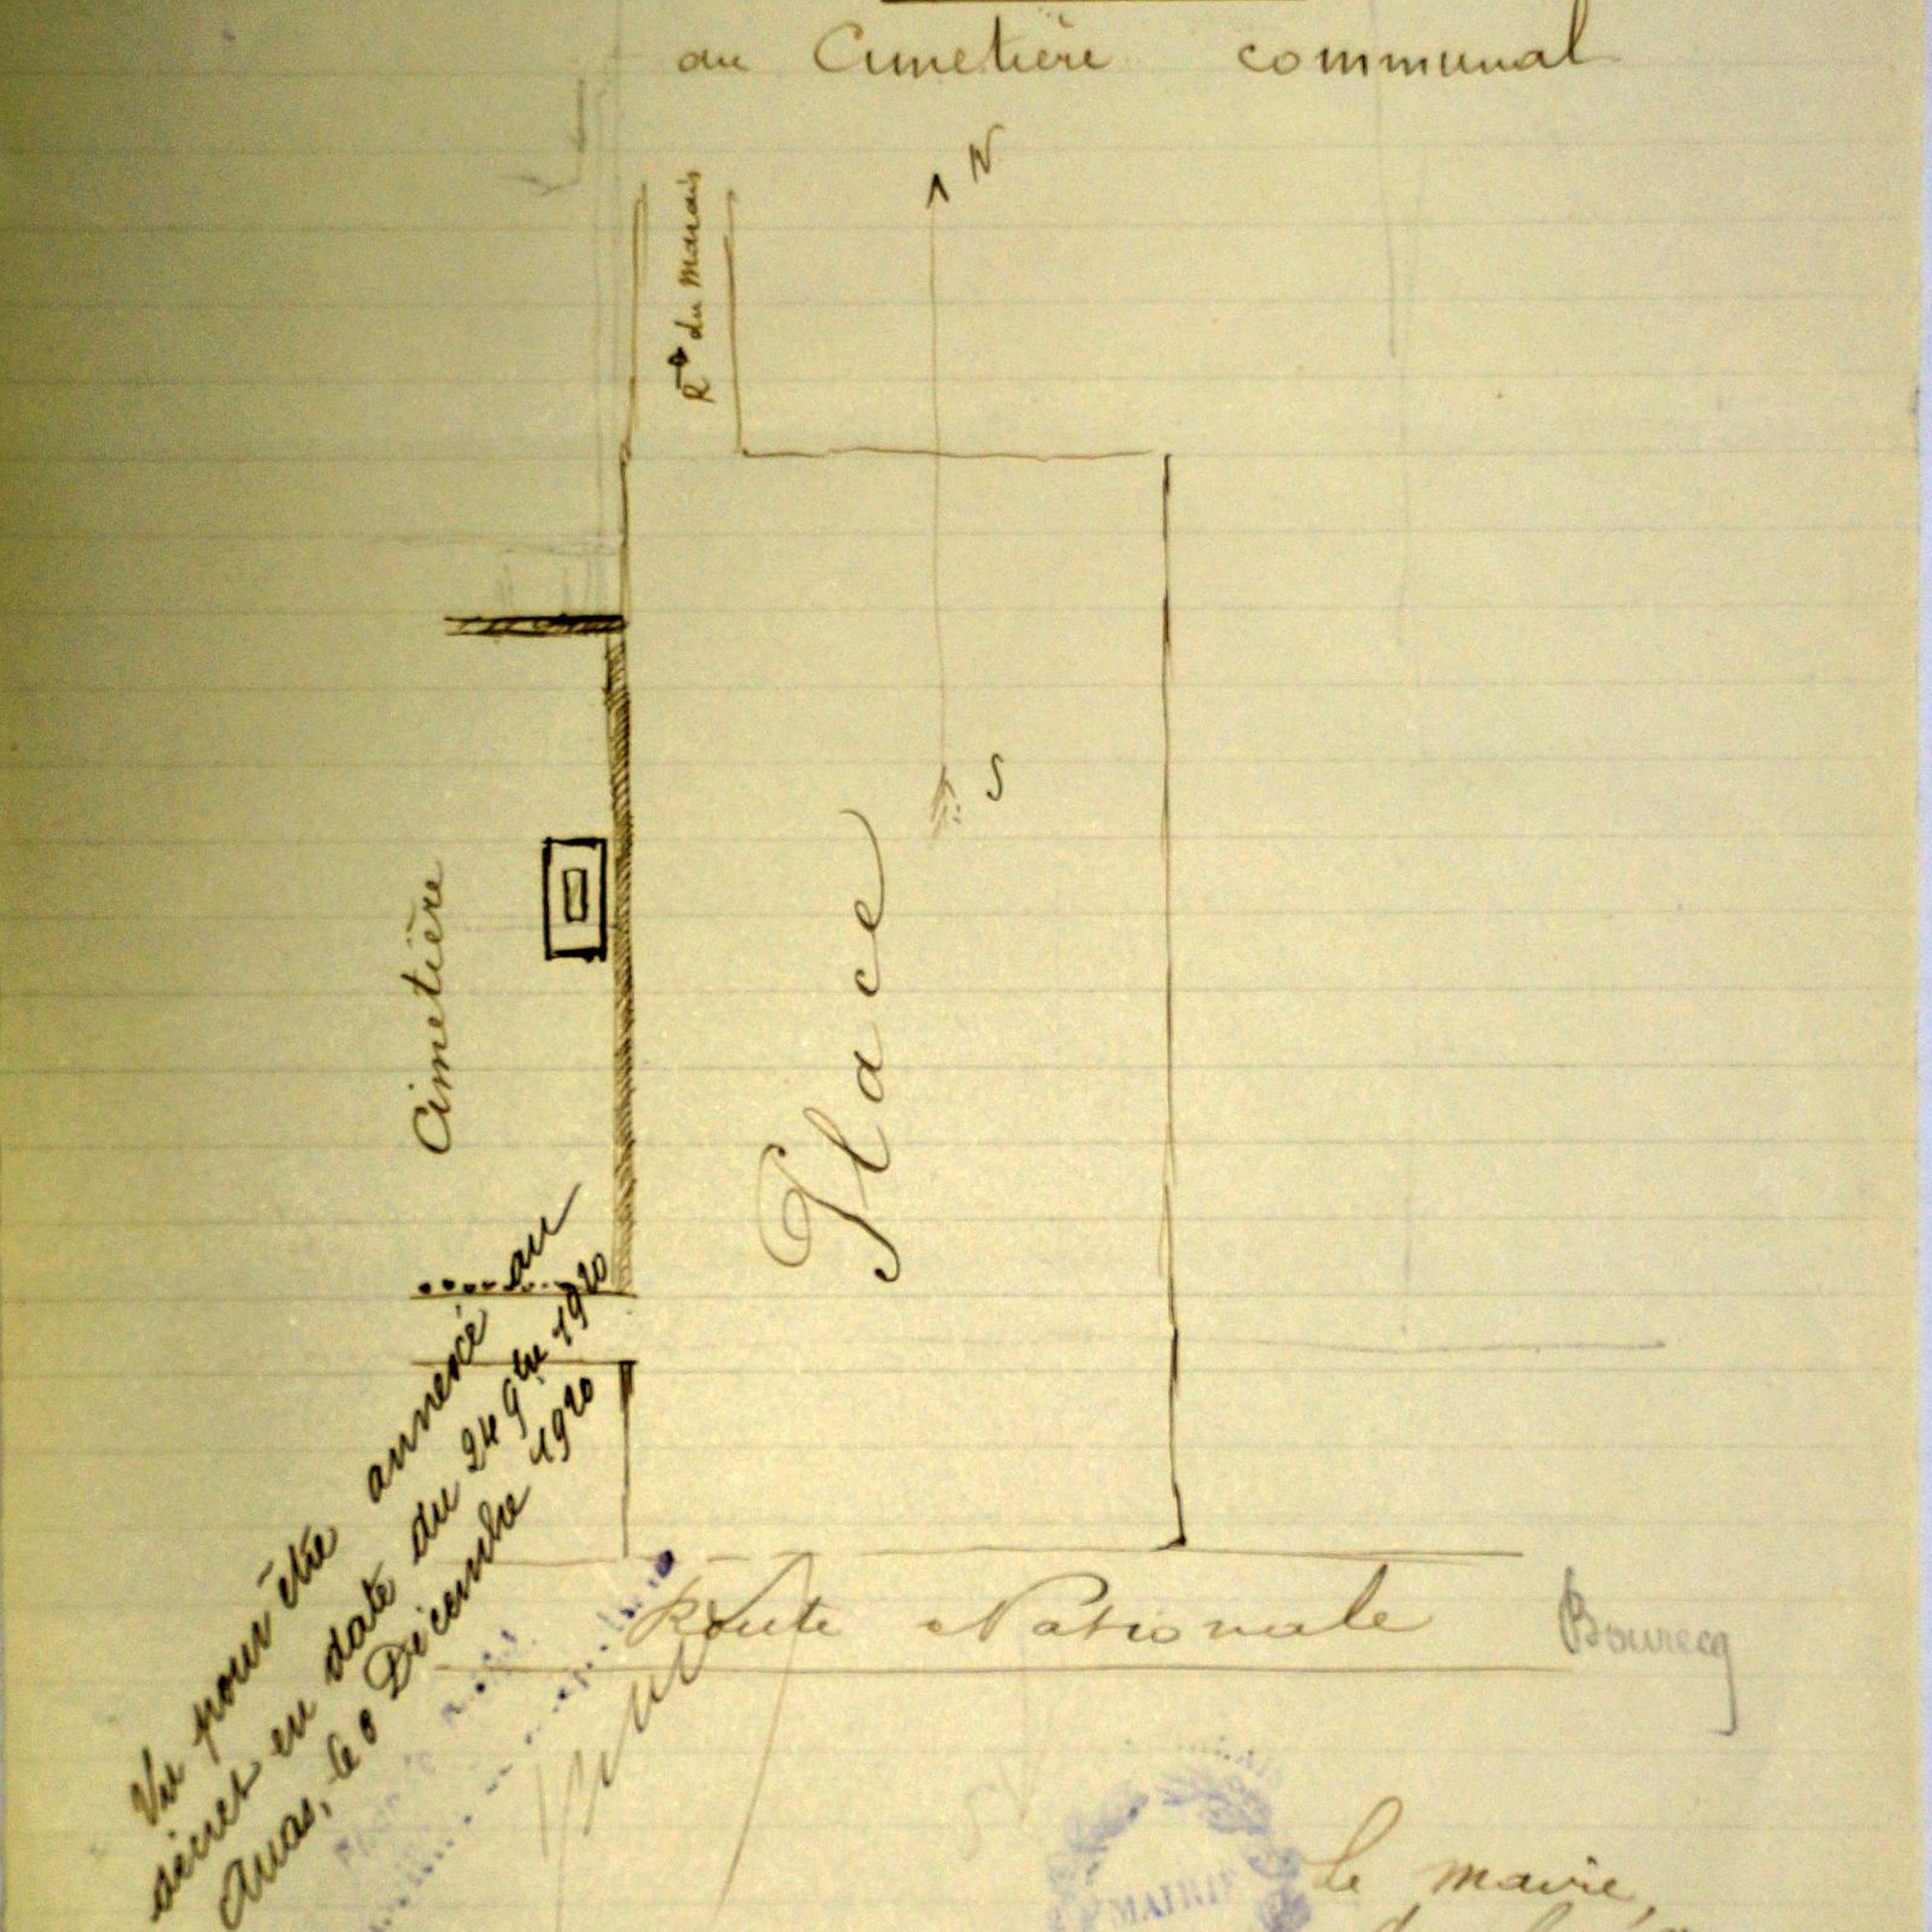 au Cimetière communal
N
R^te du Marais
S
Cimetière
Place
Vu pour être annexé au
décret en date du 24 9bre 1920
Arras, le 8 Décembre 1920
Route Nationale
Bourecq
MAIRIE
Le Maire,